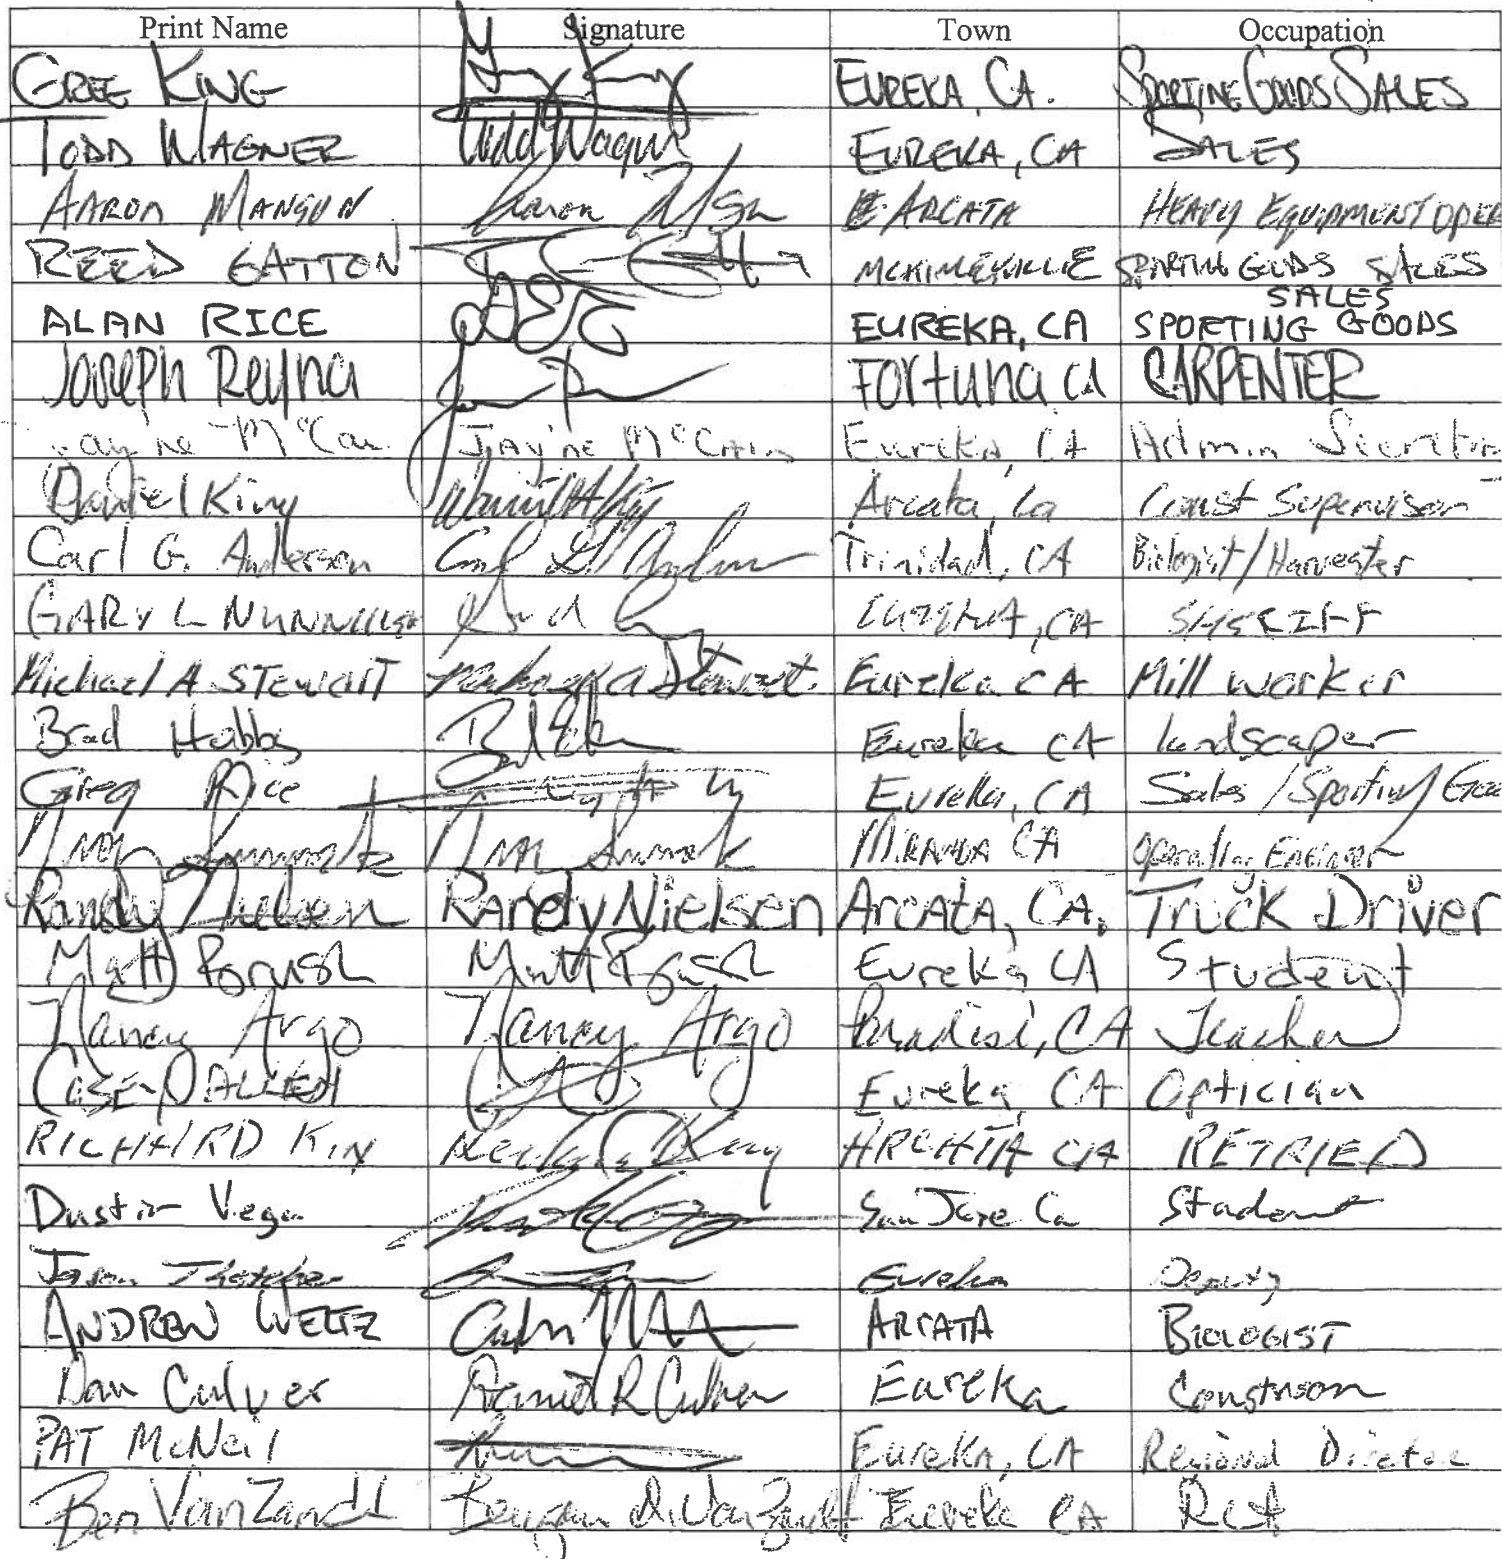 Print Name Signature Town Occupation
GREG KING Greg King EUREKA, CA. SPORTING GOODS SALES
TODD WAGNER Todd Wagner EUREKA, CA SALES
AARON MANGUN Aaron ARCATA HEAVY EQUIPMENT OPER
REED GATTON MCKINLEYVILLE SPORTING GOODS SALES
ALAN RICE EUREKA, CA SPORTING GOODS SALES
Joseph Reyna Fortuna CA CARPENTER
Jayne McCain Eureka, CA Admin
Daniel King Arcata, Ca Const Supervisor
Carl G. Anderson Carl G Anderson Trinidad, CA Biologist/Harvester
GARY L EUREKA, CA SHERIFF
Michael A STEWART Michael A Stewart Eureka CA Mill worker
Brad Hobbs Eureka CA landscaper
Greg Rice Eureka, CA Sales/Sporting Goo
MIRANDA CA Operating Engineer
Randy Nielsen Randy Nielsen Arcata, CA. Truck Driver
Matt Brush Matt Brush Eureka CA Student
Nancy Argo Nancy Argo Paradise, CA Teacher
CASEY D ALLEN Eureka, CA Optician
RICHARD KIN King ARCATA CA RETRIED
Dustin Vega San Jose Ca Student
Jason Thatcher Eureka Deputy
ANDREW WELTZ ARCATA BIOLOGIST
Dan Culver Daniel R Culver Eureka
PAT McNeil Eureka, CA Regional Director
Ben VanZandt Eureka CA Ret